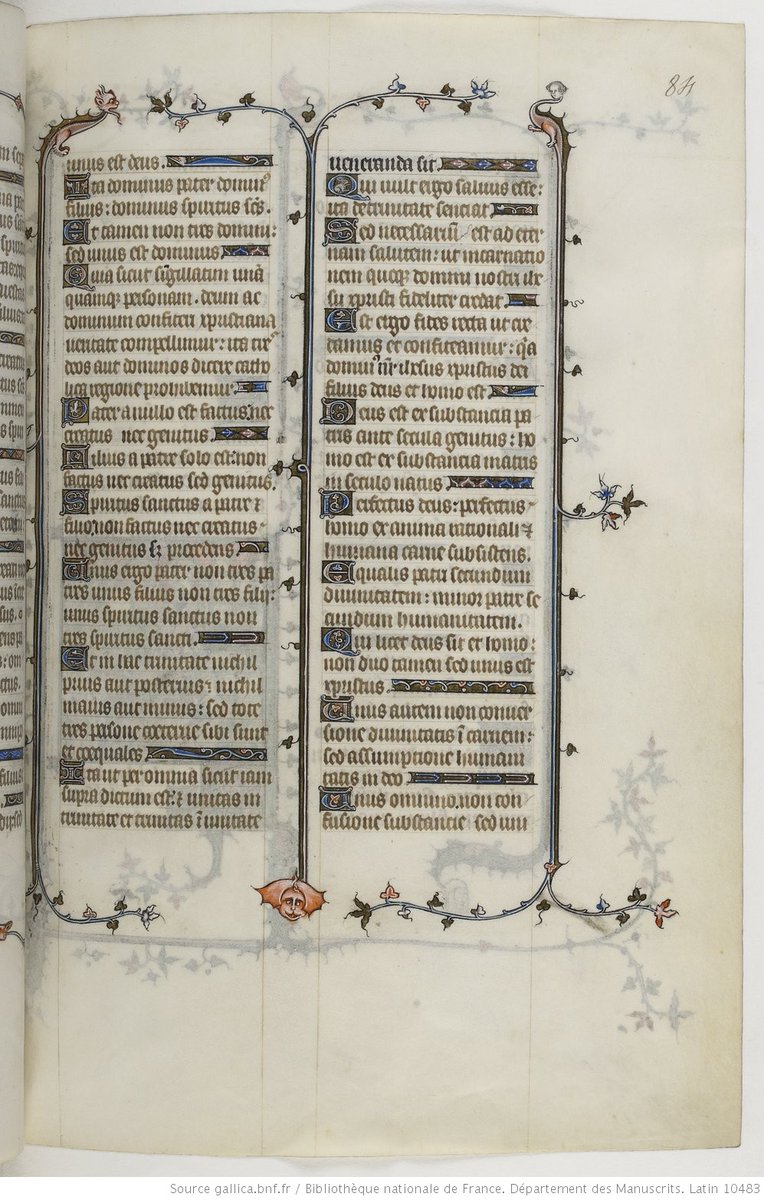 84
unus est deus.
Ita dominus pater dominꝰ
filius: dominus spiritus sc̄s.
Et tamen non tres domini:
sed unus est dominus
Quia sicut singillatim unā
quamqꝫ personam. deum ac
dominum confiteri xpristiana
veritate compellimur: ita tres
deos aut dominos dicere catho
lica religione prohibemur
Pater a nullo est factus: nec
creatus nec genitus.
Filius a patre solo est: non
factus nec creatus sed genitus.
Spiritus sanctus a patre ⁊
filio: non factus nec creatus
nec genitus sꝫ procedens
Unus ergo pater non tres pa
tres unus filius non tres filii:
unus spiritus sanctus non
tres spiritus sancti.
Et in hac trinitate nichil
prius aut posterius: nichil
maius aut minus: sed tote
tres persone coeterne sibi sunt
et coequales
Ita ut per omnia sicut iam
supra dictum est: ⁊ unitas in
trinitate et trinitas ī unitate
veneranda sit.
Qui vult ergo salvus esse:
ita de trinitate sentiat
Sed necessariū est ad eter
nam salutem: ut incarnatio
nem quoqꝫ domini nostri ihe
su xpristi fideliter credat
Est ergo fides recta ut cre
damus et confiteamur: q̄a
dominꝰ nr̄ ihesus xpristus dei
filius deus et homo est
Deus est ex substancia pa
tris ante secula genitus: ho
mo est ex substancia matris
in seculo natus
Perfectus deus: perfectus
homo ex anima rationali ⁊
humana carne subsistens.
Equalis patri secundum
divinitatem: minor patre se
cundum humanitatem.
Qui licet deus sit et homo:
non duo tamen sed unus est
xpristus.
Unus autem non conver
sione divinitatis ī carnem:
sed assumptione humani
tatis in deo
Unus omnino. non con
fusione substancie sed uni
Source gallica.bnf.fr / Bibliothèque nationale de France. Département des Manuscrits. Latin 10483